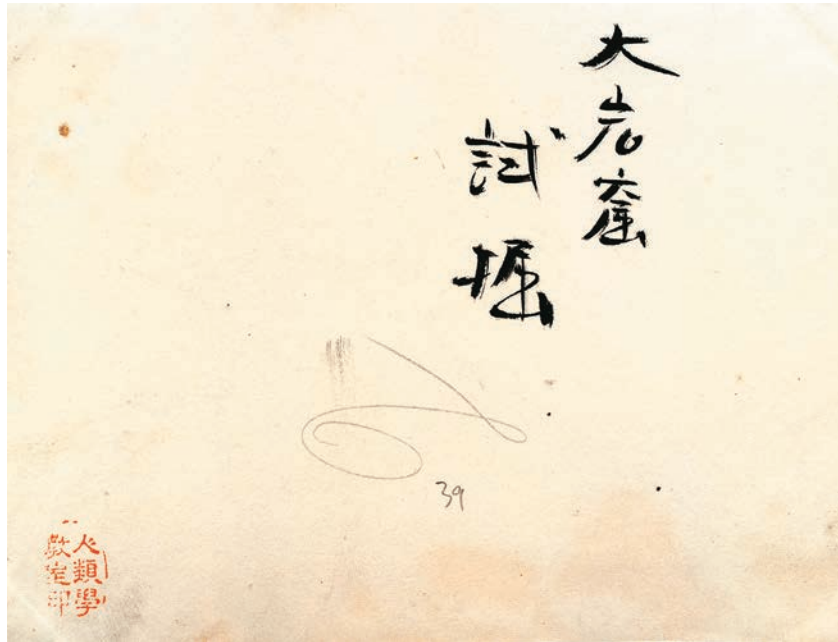 大岩窟
試掘
39
人類學
教室印